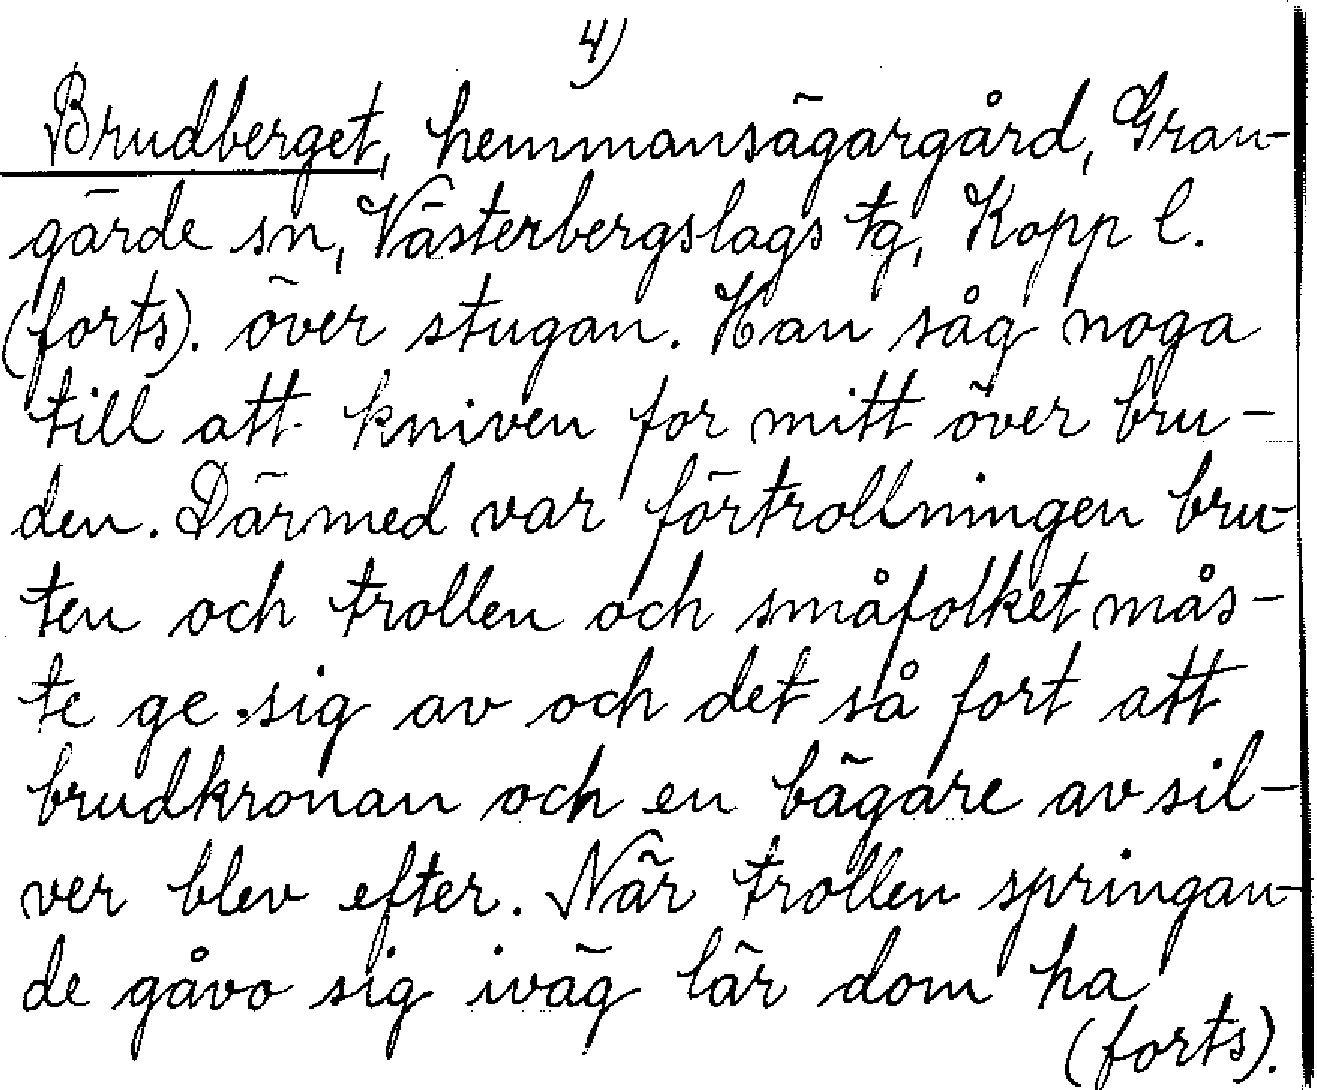 4)
Brudberget, hemmansägargård, Gran-
gärde sn, Västerbergslags tg, Kopp l.
(forts). över stugan. Han såg noga
till att kniven for mitt över bru-
den. Därmed var förtrollningen bru-
ten och trollen och småfolket mås-
te ge sig av och det så fort att
brudkronan och en bägare av sil-
ver blev efter. När trollen springan-
de gåvo sig iväg lär dom ha
(forts).